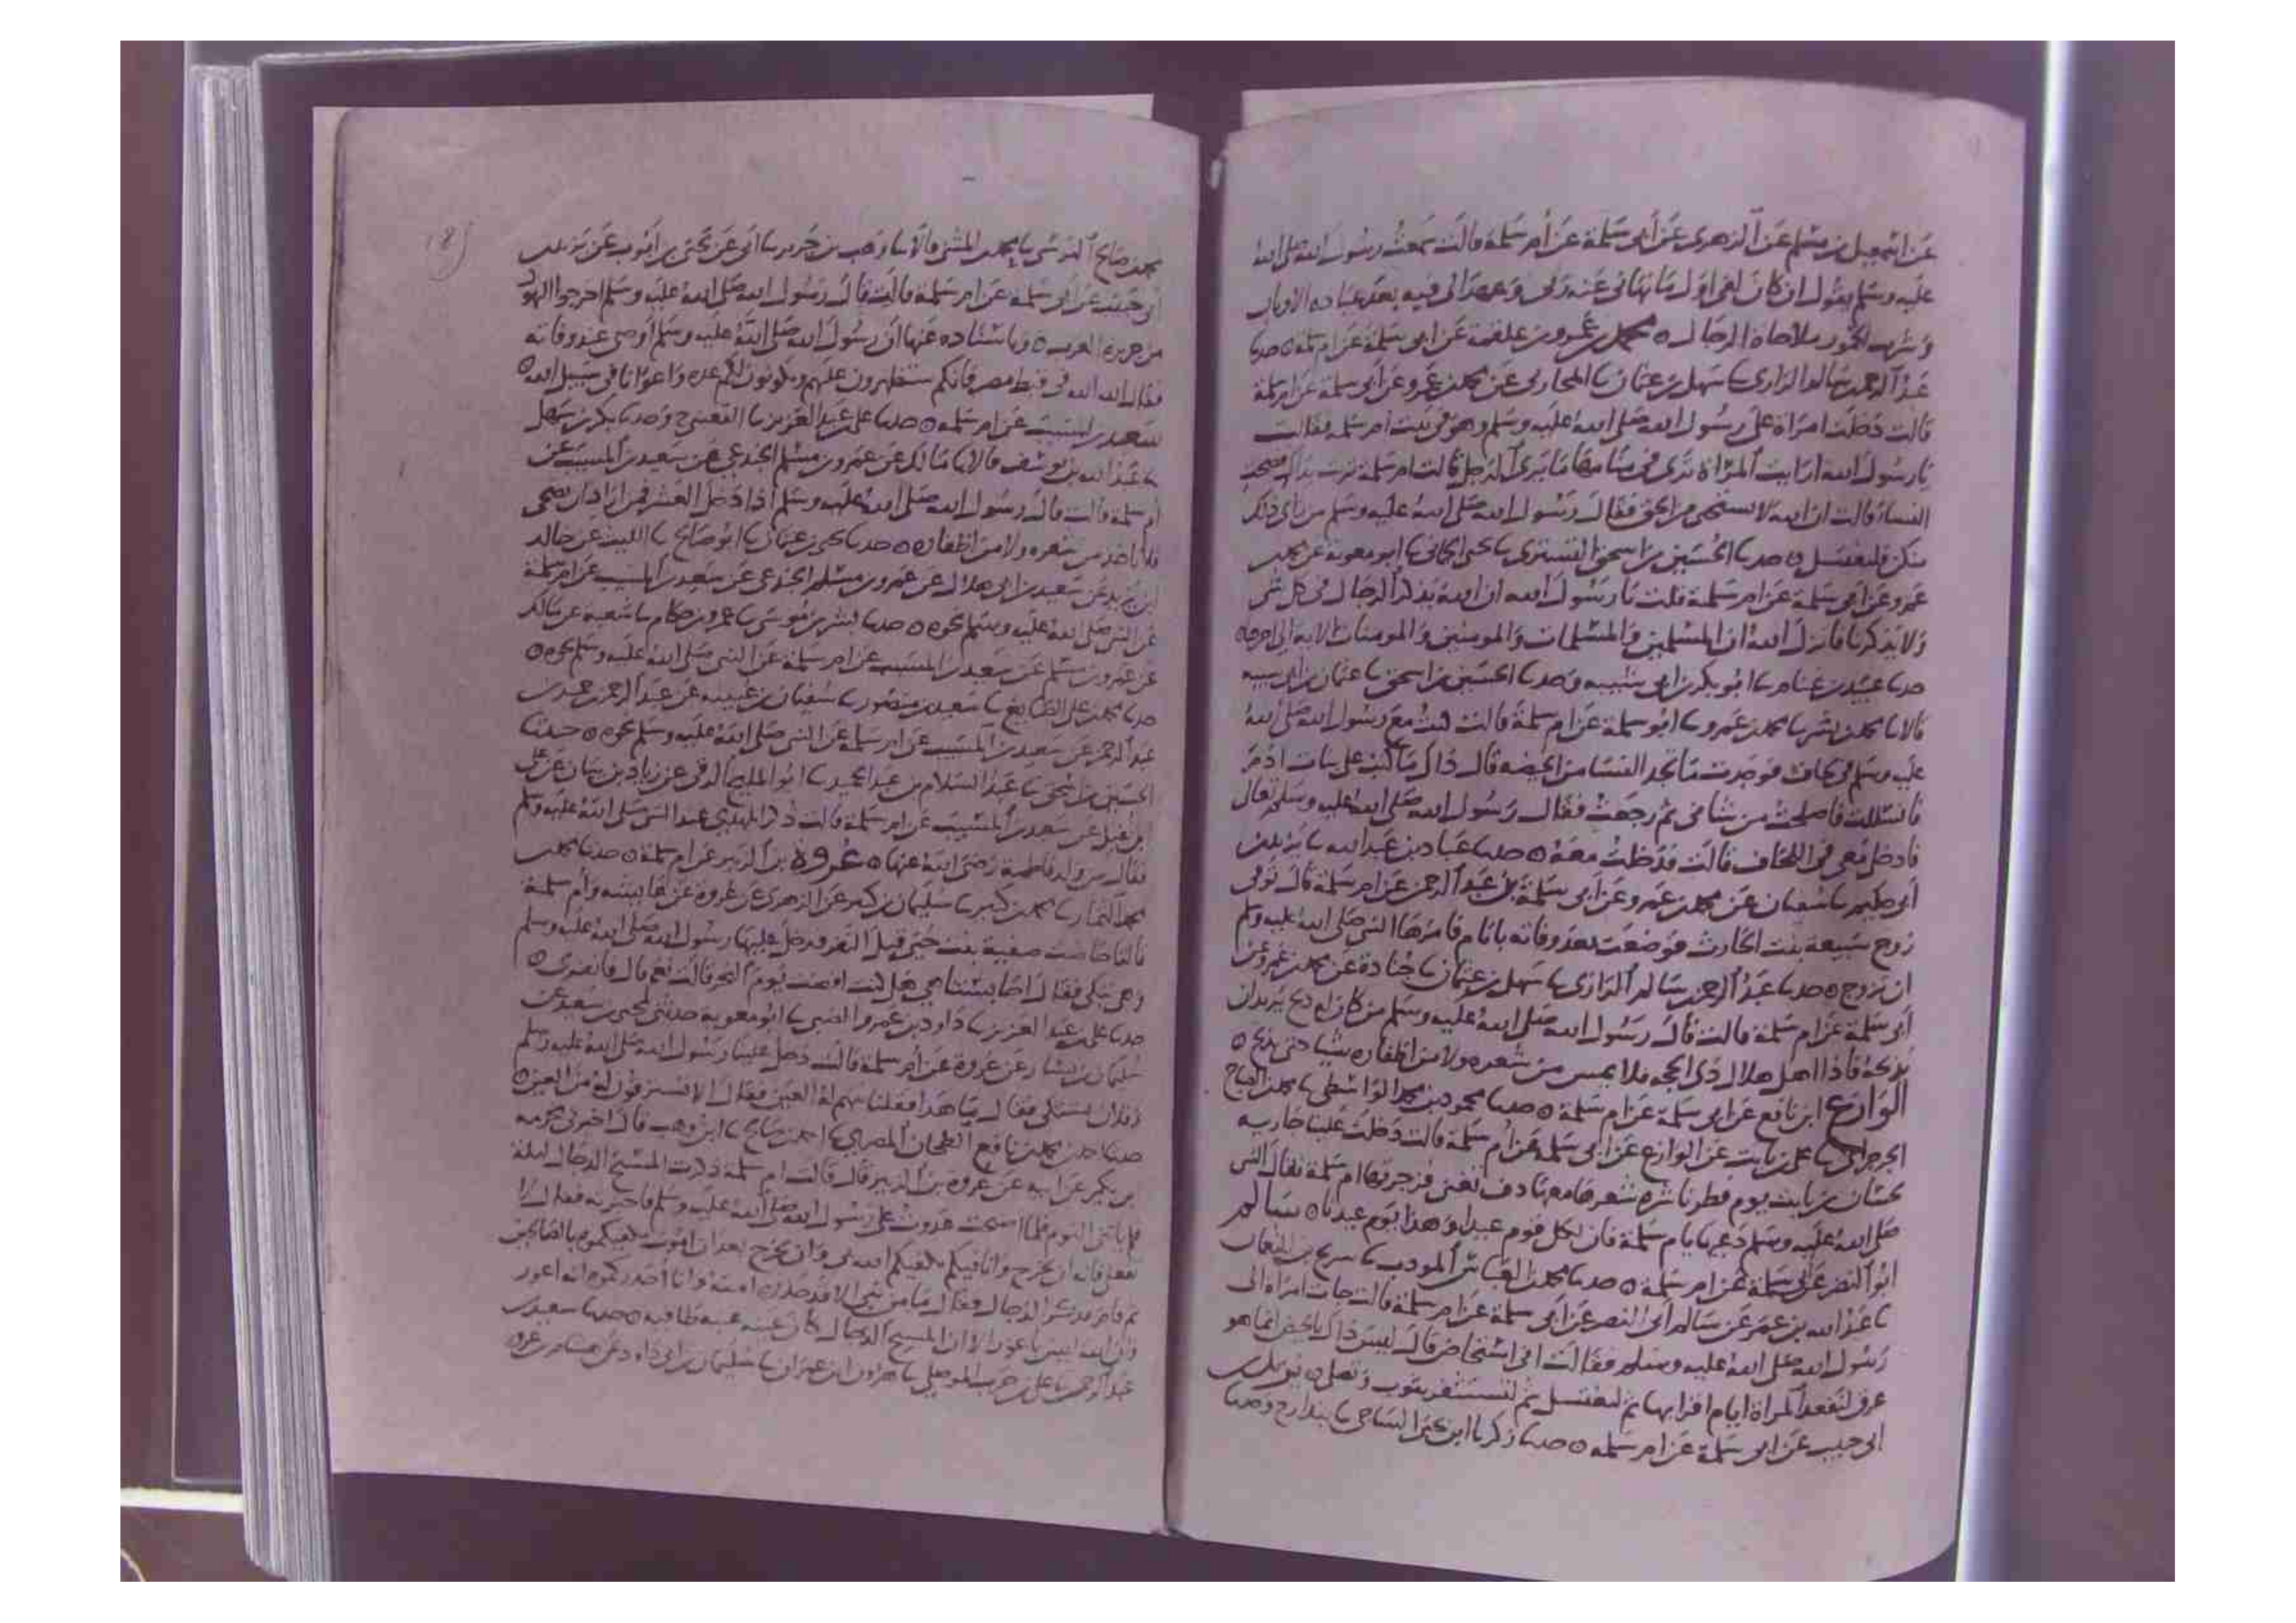 عن اسمعيل بن مسلم عن الزهرى عن أبى سلمة عن أم سلمة قالت سمعت رسول الله صلى الله
عليه وسلم يقول ان كان لفى اول ما نهانى عنه ربى وعهد الى فيه بعد عباده الاوثان
وشرب الخمور ملاحاة الرجال ه محمد بن عمرو بن علقمة عن ابى سلمة عن ام سلمة ه حدسا
عبد الرحمن بن سالم الرازى سا سهل بن عثمان سا المحاربى عن محمد بن عمرو عن أبى سلمة عن ام سلمة
قالت دخلت امرأة على رسول الله صلى الله عليه وسلم وهو فى بيت ام سلمة فقالت
يا رسول الله ارايت المرأة ترى فى منامها ما يرى الرجل قالت ام سلمة تربت يداك فضحت
النساء قالت ان الله لا يستحى من الحق فقال رسول الله صلى الله عليه وسلم من رأى ذلك
منكن فلتغتسل ه حدسا الحسين بن اسحق التسترى سا يحيى الحمانى سا ابو معوية عن محمد بن
عمرو عن ابى سلمة عن ام سلمة قلت يا رسول الله ان الله يذكر الرجال فى كل شى
ولا يذكرنا فانزل الله ان المسلمين والمسلمات والمومنين والمومنات الاية الى اخرها ه
حدسا عبيد بن غنام سا ابو بكر بن ابى شيبه وحدسا الحسين بن اسحق سا عثمان بن ابى شيبه
قالا نا محمد بن بشر سا محمد بن عمرو سا ابو سلمة عن ام سلمة قالت كنت مع رسول الله صلى الله
عليه وسلم فى لحاف فوجدت ما تجد النسا من الحيضه قال ذاك ما كتب على بنات ادم
فانسللت فاصلحت من شانى ثم رجعت فقال رسول الله صلى الله عليه وسلم تعال
فادخلى معى فى اللحاف قالت فدخلت معه ه حدسا عباد بن عبد الله سا يزيد بن
أبى حكيم سا سفيان عن محمد بن عمرو عن ابى سلمة بن عبد الرحمن عن ام سلمة قال توفى
زوج سبيعة بنت الحارث فوضعت بعد وفاته بايام فامرها النبى صلى الله عليه وسلم
ان تزوج ه حدسا عبد الرحمن بن سالم الرازى سا سهل بن عثمان سا جنادة عن محمد بن عمرو عن
أبى سلمة عن ام سلمة قالت قال رسول الله صلى الله عليه وسلم من كان له ذبح يريد ان
يذبحه فاذا اهل هلال ذى الحجه فلا يمس من شعره ولا من اظفاره شيا حتى يذبح ه
الوازع ابن نافع عن ابى سلمة عن ام سلمة ه حدسا محمود بن محمد الواسطى سا محمد بن الصباح
الجرجرائى سا على بن ثابت عن الوازع عن ابى سلمة عن أم سلمة قالت دخلت علينا جاريه
لحسان بن ثابت يوم فطر ناشرة شعرها معها دف تغنى فزجرتها ام سلمة فقال النبى
صلى الله عليه وسلم دعيها يا ام سلمة فان لكل قوم عيدا وهذا يوم عيدنا ه سالم
ابو النضر عن ابى سلمة عن ام سلمة ه حدسا محمد بن العباس المودب سا سريج بن النعمان
سا عبد الله بن عمر عن سالم أبى النضر عن أبى سلمة عن ام سلمة قالت جات امراة الى
رسول الله صلى الله عليه وسلم فقالت انى استحاض قال ليس ذاك بالحيض انما هو
عرق لتقعد المراة ايام اقرائها ثم لتغتسل ثم لتستثفر بثوب وتصلى ه يزيد بن
ابى حبيب عن ابى سلمة عن ام سلمه ه حدسا زكريا ابن يحيى الساجى سا بندار ح وحدسا
محمد بن صالح النرسى سا محمد بن المثنى قالا سا وهب بن جرير سا أبى عن يحيى بن أيوب عن يزيد بن
أبى حبيب عن ابى سلمة عن ام سلمة قالت قال رسول الله صلى الله عليه وسلم اخرجوا اليهود
من جزيرة العرب ه وباسناده عنها أن رسول الله صلى الله عليه وسلم أوصى عند وفاته
فقال الله الله فى قبط مصر فانكم ستظهرون عليهم ويكونون لكم عدة واعوانا فى سبيل الله ه
سعيد بن المسيب عن ام سلمه ه حدسا على بن عبد العزيز سا القعنبى ح وحدسا بكر بن سهل
سا عبد الله بن يوسف قالا نا مالك عن عمرو بن مسلم الجندعى عن سعيد بن المسيب عن
أم سلمة قالت قال رسول الله صلى الله عليه وسلم اذا دخل العشر فمن اراد ان يضحى
فلا ياخذ من شعره ولا من اظفاره ه حدسا يحيى بن عثمان سا ابو صالح سا الليث عن خالد
ابن يزيد عن سعيد بن ابى هلال عن عمرو بن مسلم الجندعى عن سعيد بن المسيب عن ام سلمة
عن النبى صلى الله عليه وسلم نحوه ه حدسا بشر بن موسى سا عمرو بن حكام سا شعبه عن مالك
عن عمرو بن مسلم عن سعيد بن المسيب عن ام سلمة عن النبى صلى الله عليه وسلم نحوه ه
حدسا محمد بن على الصايغ سا سعيد بن منصور سا سفيان بن عيينه عن عبد الرحمن بن حميد بن
عبد الرحمن عن سعيد بن المسيب عن ام سلمة عن النبى صلى الله عليه وسلم نحوه ه حدثنا
الحسين بن اسحق سا عبد السلام بن عبد الحميد سا ابو المليح الرقى عن زياد بن بيان عن على
بن نفيل عن سعيد بن المسيب عن ام سلمة قالت ذكر المهدى عند النبى صلى الله عليه وسلم
فقال من ولد فاطمة رضى الله عنها ه عروة بن الزبير عن ام سلمة ه حدسا محمد بن
محمد التمار سا محمد بن كثير سا سليمان بن كثير عن الزهرى عن عروة عن عايشه وام سلمة
قالتا حاضت صفية بنت حيى قبل النفر فدخل عليها رسول الله صلى الله عليه وسلم
وهى تبكى فقال احابستنا هى هل كنت افضت يوم النحر قالت نعم قال فانفرى ه
حدسا على بن عبد العزيز سا داود بن عمرو الضبى سا ابو معوية حدثنى يحيى بن سعيد عن
سليمان بن يسار عن عروة عن أم سلمة قالت دخل علينا رسول الله صلى الله عليه وسلم
وفلان يشتكى فقال ما هذا فقلنا نتهم له العين فقال الا تسترقون له من العين ه
حدسا محمد بن نافع الطحان المصرى سا احمد بن صالح سا ابن وهب قال اخبرنى مخرمه
بن بكير عن ابيه عن عروة بن الزبير قال قالت ام سلمة ذكرت المسيح الدجال ليلة
فلم ياتنى النوم فلما اصبحت غدوت على رسول الله صلى الله عليه وسلم فاخبرته فقال لا
تفعلى فانه ان يخرج وانا فيكم يكفيكم الله بى وان يخرج بعد ان اموت يكفيكموه بالصالحين
ثم قام فذكر الدجال وقال ما من نبى الا قد حذر امته وانا أحذركموه انه اعور
وان الله ليس باعور الا ان المسيح الدجال كان عينه عنبه طافيه ه حدسا سعيد بن
عبد الرحمن سا على بن حرب الموصلى سا هارون ابن عمران سا سليمان بن ابى داود عن هشام بن عروه